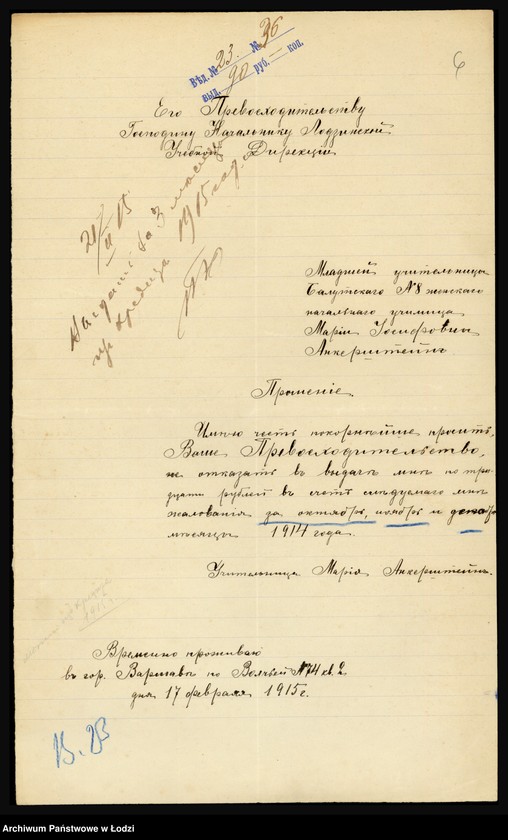 Вѣд. № 23 № 36
выд. 90 руб. — коп.
6
Его Превосходительству
Господину Начальнику Лодзинской
Учебной Дирекціи
21/II 15
Выдать за 3 мѣсяца
из кредита 1915 года
Младшей учительницы
Балутскаго № 8 женскаго
начальнаго училища
Маріи Іосифовны
Анкерштейнъ
Прошеніе.
Имѣю честь покорнѣйше просить,
Ваше Превосходительство,
не отказать въ выдачѣ мнѣ по трид-
цати рублей въ счетъ слѣдуемаго мнѣ
жалованія за октябрь, ноябрь и декабрь
мѣсяцы 1914 года.
Учительница Марія Анкерштейнъ.
Временно проживаю
въ гор. Варшавѣ по Волчьей № 74 кв. 2
дня 17 февраля 1915 г.
В. 23
Archiwum Państwowe w Łodzi